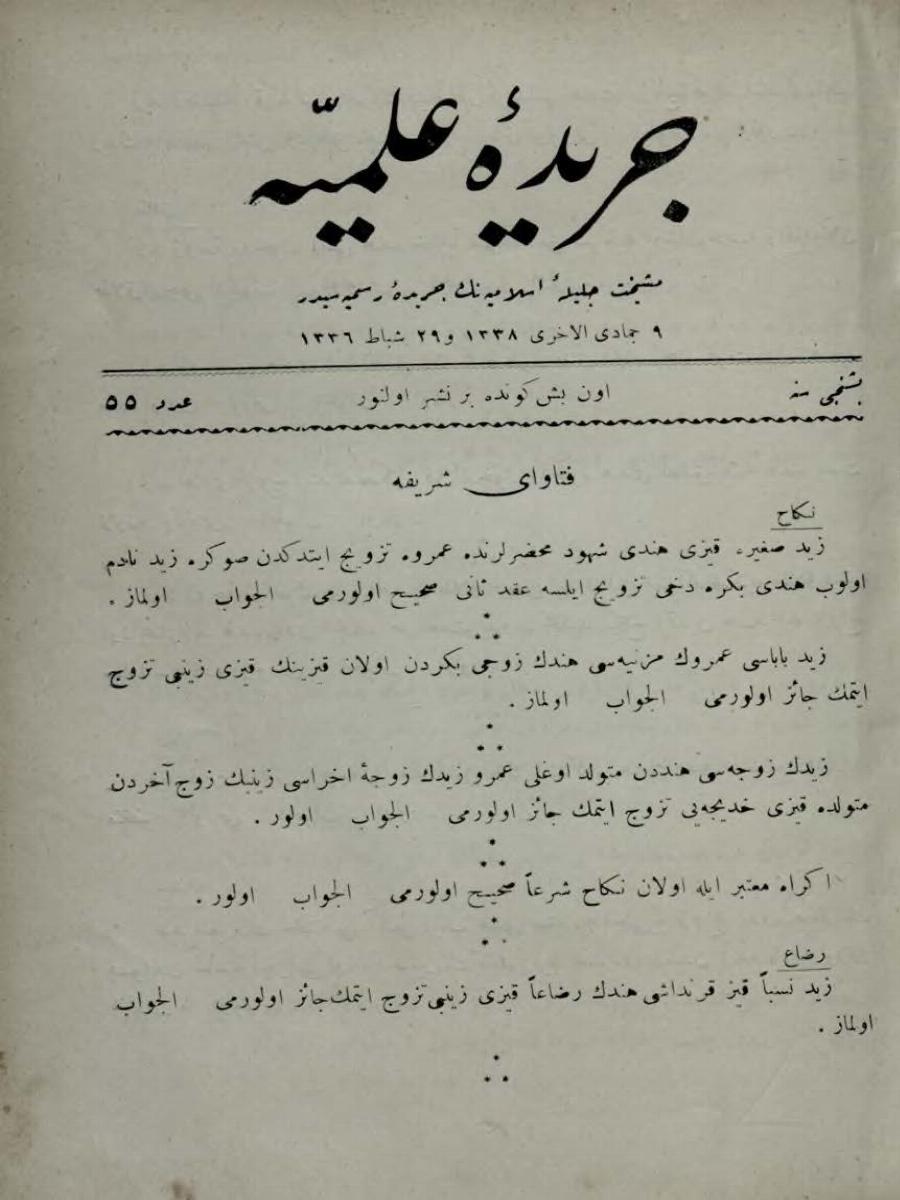 جريدهٔ علميّه
مشيخت جليلهٔ اسلاميه‌نك جريدهٔ رسميه‌سيدر
٩ جمادى الاخرى ١٣٣٨ و ٢٩ شباط ١٣٣٦
بشنجى سنه اون بش كونده بر نشر اولنور عدد ٥٥
فتاواى شريفه
نكاح
زيد صغيره قيزى هندى شهود محضرلرنده عمروه تزويج ايتدكدن صوكره زيد نادم
اولوب هندى بكره دخى تزويج ايلسه عقد ثانى صحيح اولورمى الجواب اولماز .
زيد باباسى عمروك مزنيه‌سى هندك زوجى بكردن اولان قيزينك قيزى زينبى تزوج
ايتمك جائز اولورمى الجواب اولماز .
زيدك زوجه‌سى هنددن متولد اوغلى عمرو زيدك زوجهٔ اخراسى زينبك زوج آخردن
متولده قيزى خديجه‌يى تزوج ايتمك جائز اولورمى الجواب اولور .
اكراه معتبر ايله اولان نكاح شرعاً صحيح اولورمى الجواب اولور .
رضاع
زيد نسباً قيز قرنداشى هندك رضاعاً قيزى زينبى تزوج ايتمك جائز اولورمى الجواب
اولماز .